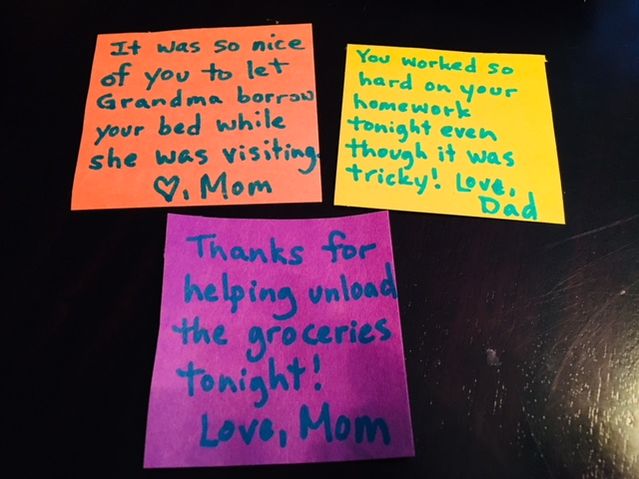 It was so nice
of you to let
Grandma borrow
your bed while
she was visiting.
♡, Mom
You worked so
hard on your
homework
tonight even
though it was
tricky! Love,
Dad
Thanks for
helping unload
the groceries
tonight!
Love, Mom